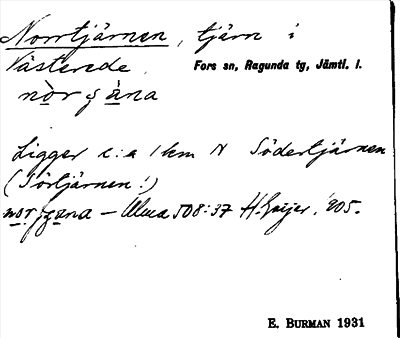 Norrtjärnen, tjärn i
Västerede. Fors sn, Ragunda tg, Jämtl. l.
Ligger c:a 1 km N Södertjärnen
(Sörtjärnen!)
508:37 H. Geijer. '05.
E. BURMAN 1931